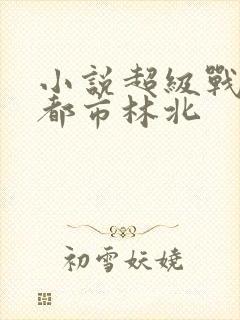 小説超級戰
都市林北
初雪妖嬈